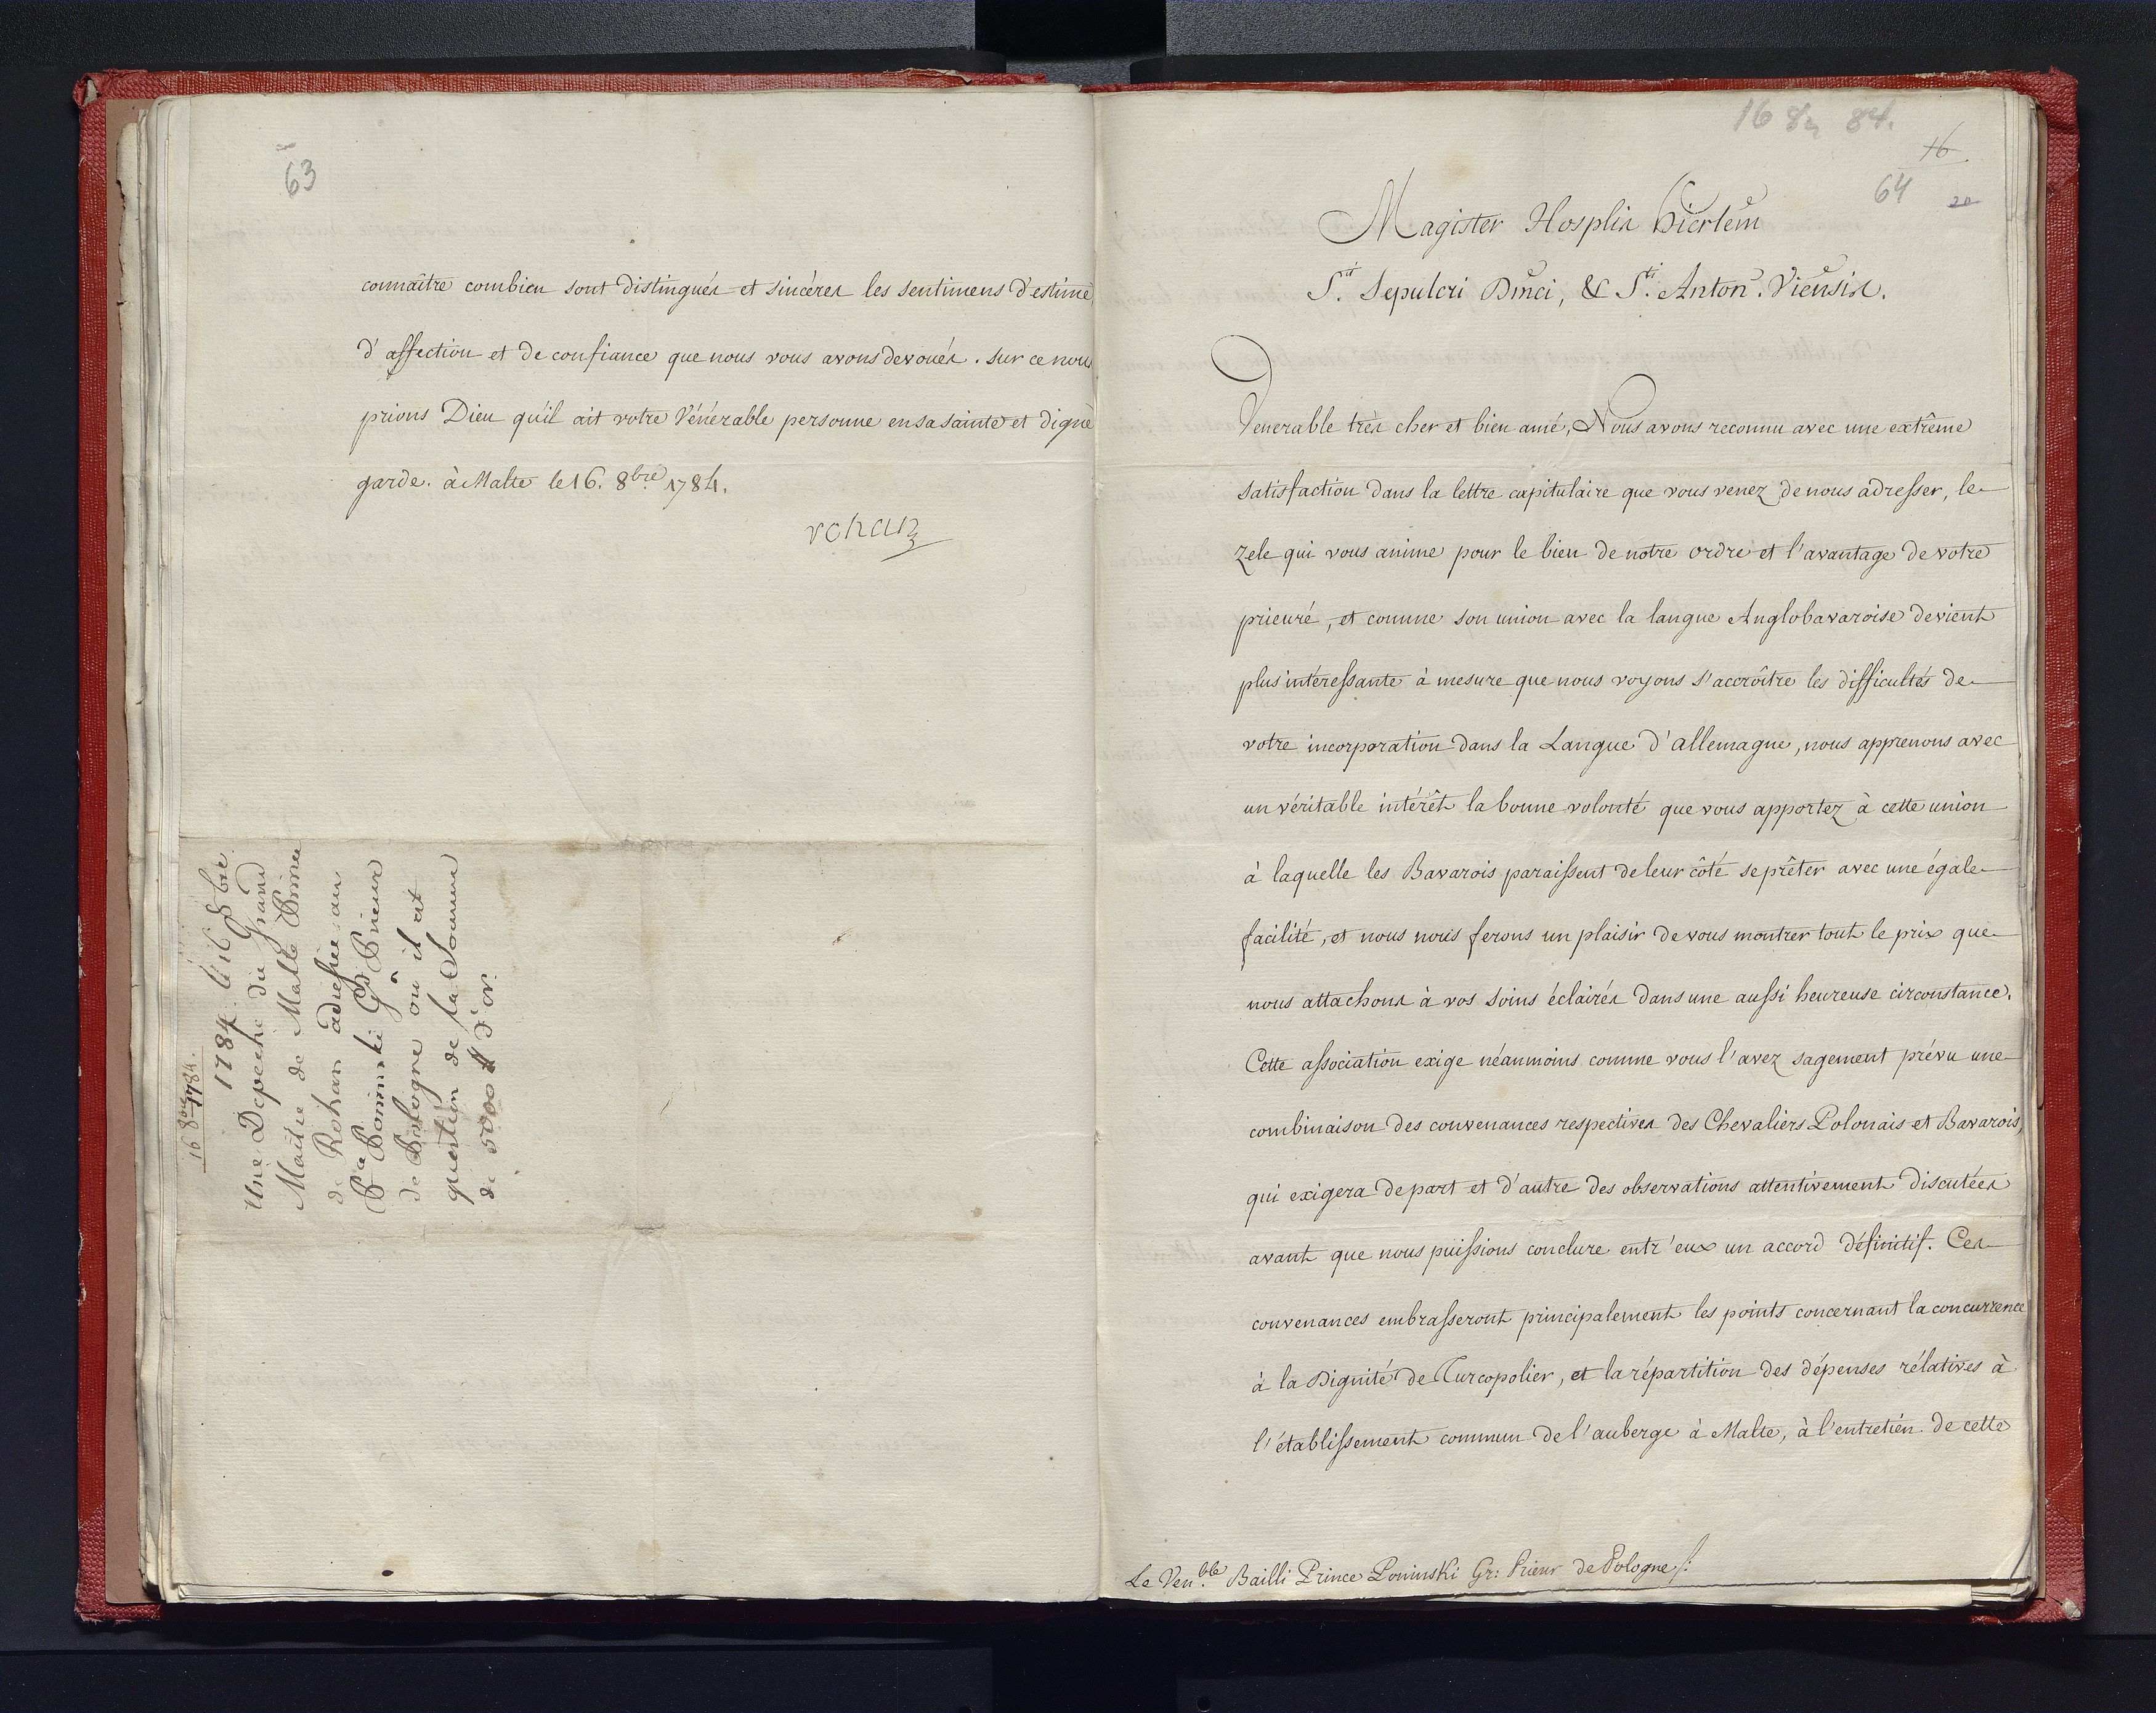 63
connaître combien sont distingués et sincéres les sentimens d'estime
d'affection et de confiance que nous vous avons devoués. sur ce nous
prions Dieu qu'il ait votre Vénérable personne en sa sainte et digne
garde. à Malte le 16. 8bre 1784.
rohan
16 8bre 1784.
1784 le 16 8bre
Une Depeche du Grand
Maitre de Malte Prince
de Rohan adressée au
Pce Poninski Gd Prieur
de Pologne où il est
question de la Somme
de 5000 # d'or.
16 8b 84.
16
64 20
Magister Hosplis Hierlem
Sti Sepulcri Dnici, & Sti Anton. Viensis.
Venerable très cher et bien amé, Nous avons reconnu avec une extrême
satisfaction dans la lettre capitulaire que vous venez de nous adresser, le
zele qui vous anime pour le bien de notre ordre et l'avantage de votre
prieuré, et comme son union avec la langue Anglobavaroise devient
plus intéressante à mesure que nous voyons s'accroître les difficultés de
votre incorporation dans la Langue d'allemagne, nous apprenons avec
un véritable intérêt la bonne volonté que vous apportez à cette union
à laquelle les Bavarois paraissent de leur côté se prêter avec une égale
facilité, et nous nous ferons un plaisir de vous montrer tout le prix que
nous attachons à vos soins éclairés dans une aussi heureuse circonstance.
Cette association exige néanmoins comme vous l'avez sagement prévu une
combinaison des convenances respectives des Chevaliers Polonais et Bavarois,
qui exigera de part et d'autre des observations attentivement discutées
avant que nous puissions conclure entr'eux un accord définitif. Ces
convenances embrasseront principalement les points concernant la concurrence
à la Dignité de Turcopolier, et la répartition des dépenses rélatives à
l'établissement commun de l'auberge à Malte, à l'entretien de cette
Le Venble Bailli Prince Poninski Gr: Prieur de Pologne /: